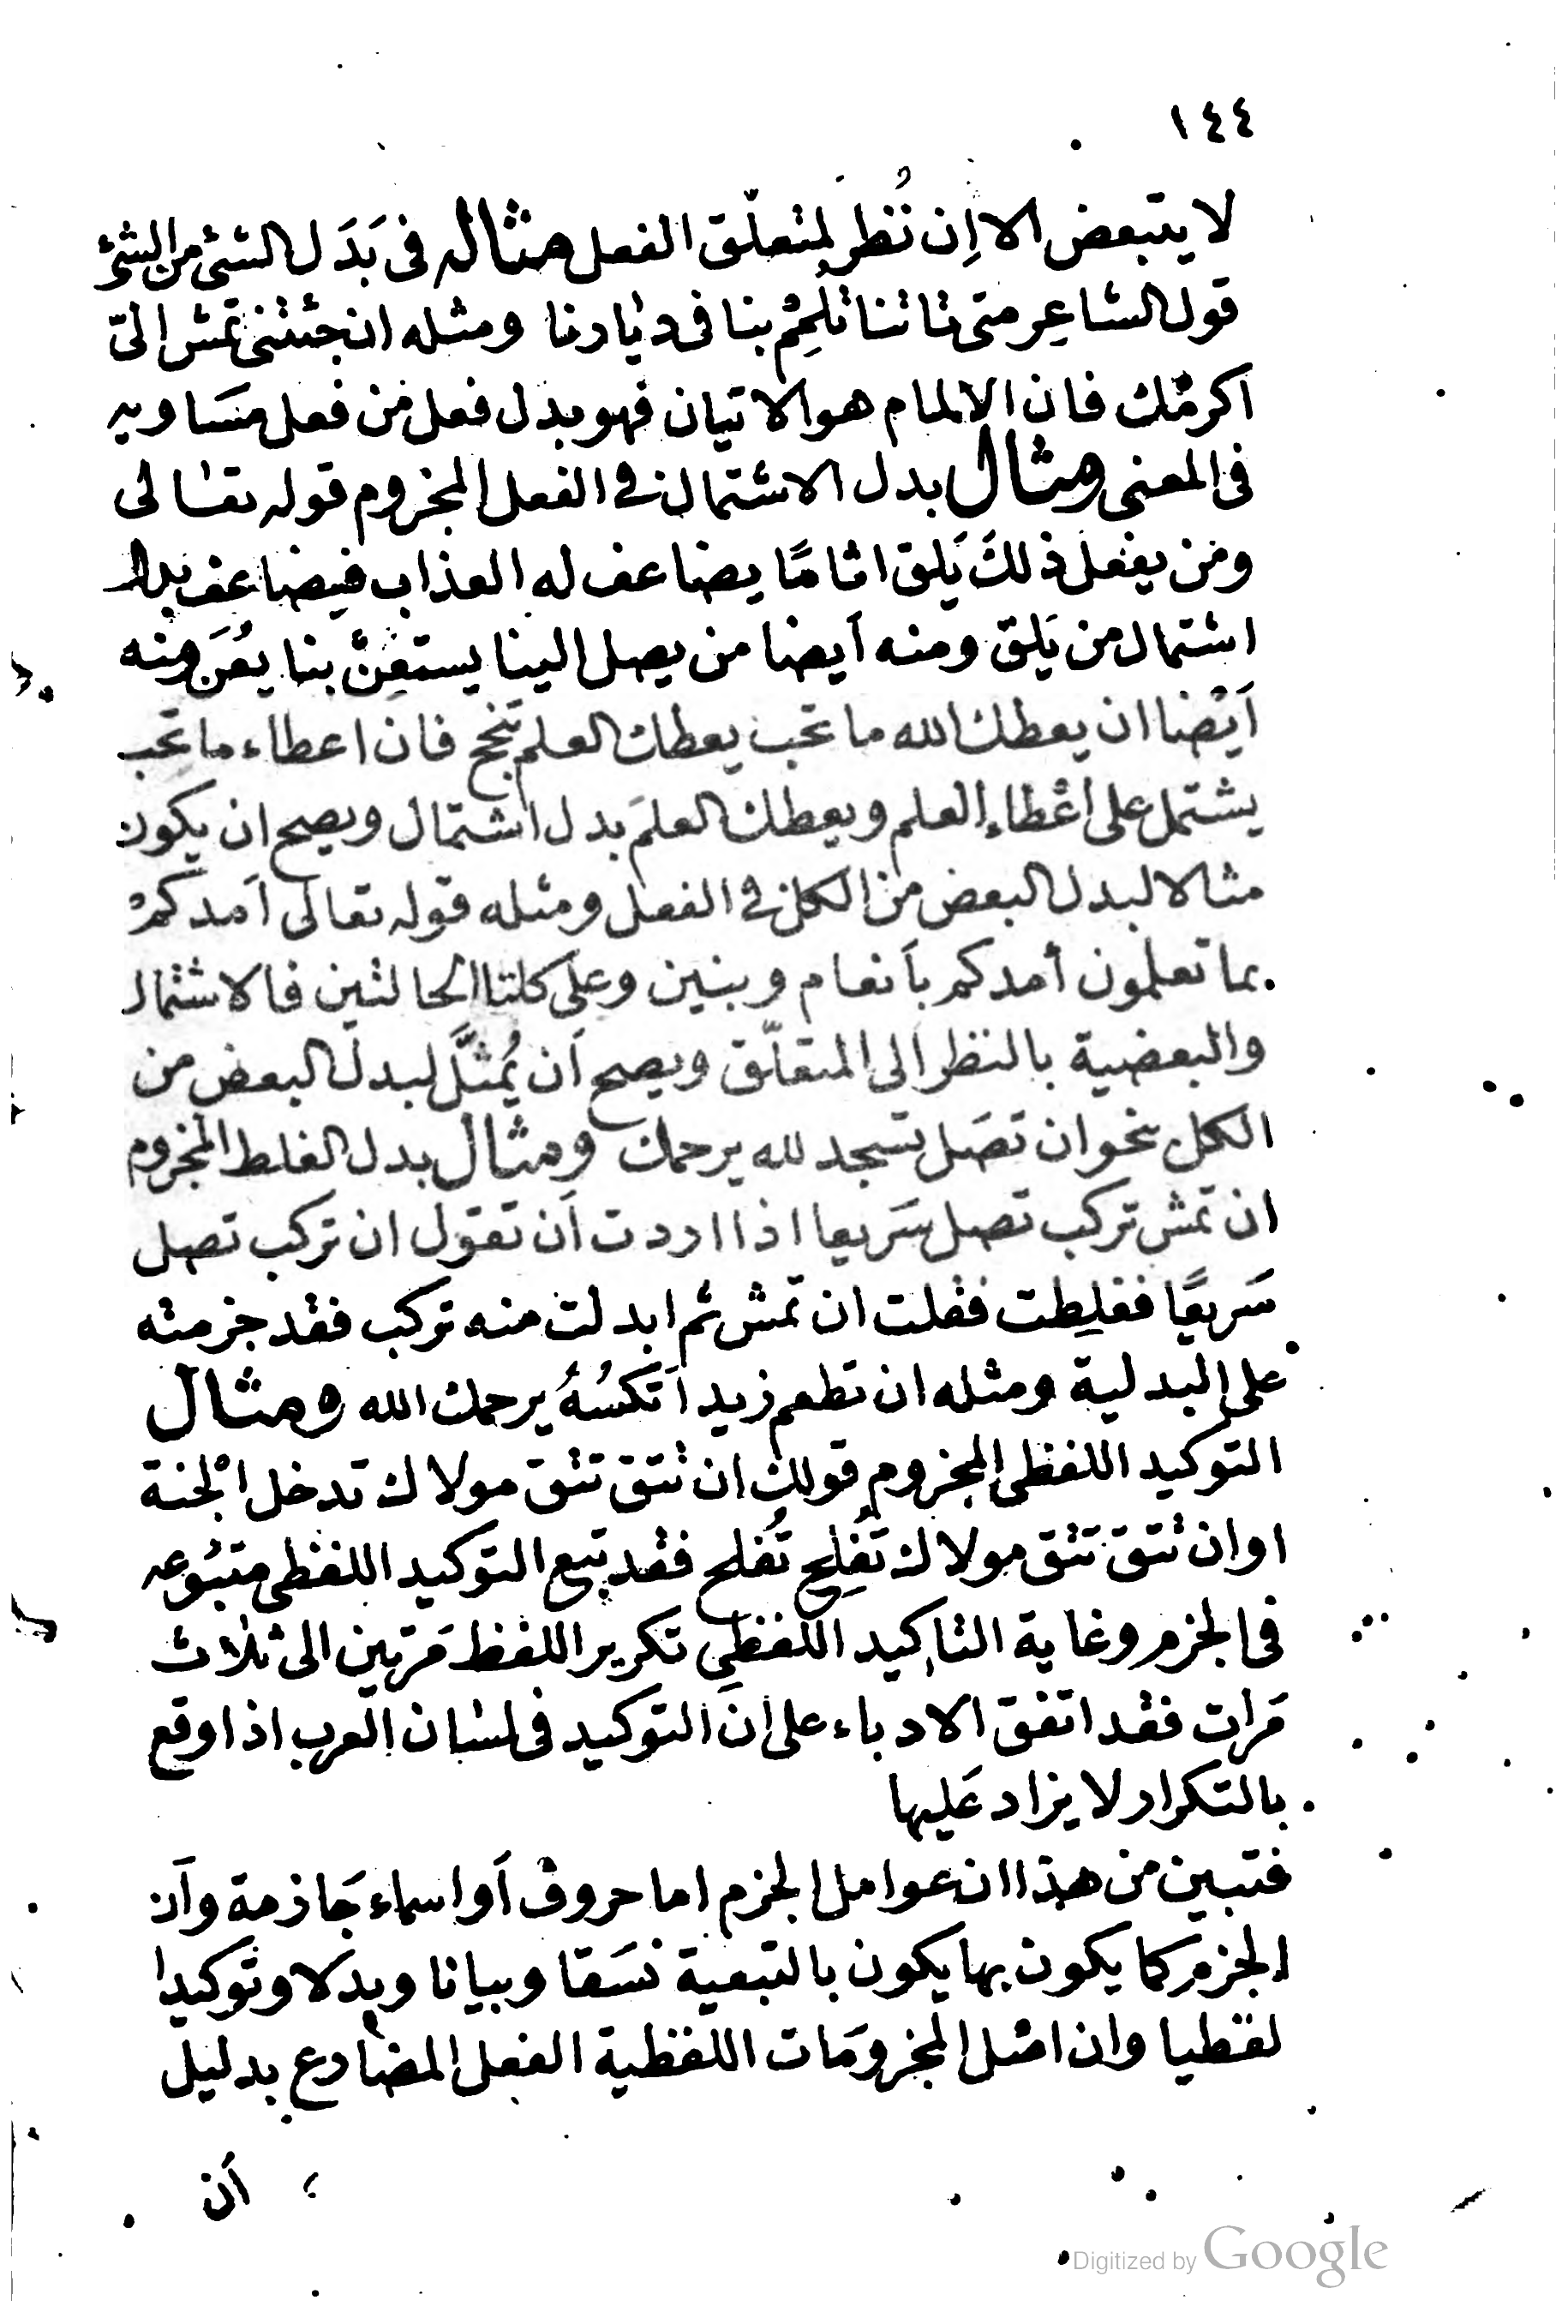 ١٤٤
لا يتبعض الا اِن نُظر لمتعلّق الفعل مثال فى بَدَل الشئ من الشئ
قول الشاعِر متى تاتنا تُلمِمْ بنا فى ديارنا ومثله ان جئتنى تمش الىّ
اكرمْك فان الالمام هو الاتيان فهو بدل فعل من فعل مسَاويه
فى المعنى ومثال بدل الاشتمال فى الفعل المجزوم قوله تعالى
ومن يفعل ذلكَ يَلق اثامًا يضاعف له العذاب فيضاعف بدل
اشتمال من يَلق ومنه اَيضا من يصل الينا يستعِنْ بنا يعُنَ ومنه
اَيْضا ان يعطك الله ما تحب يعطك العلم تنجح فان اعطاء ما تحب
يشتمل على اعْطاء العلم ويعطك العلمَ بدل اشتمال ويصح ان يكون
مثالا لبدل البعض من الكل فى الفعل ومثله قوله تعالى اَمدكمْ
بما تعلمون أمدكم باَنعام وبنين وعلى كلتا الحالتين فالاشتمال
والبعضية بالنظر الى المتعلّق ويصح اَن يُمثَّل لبدل البعض من
الكل نحو ان تصَل تسجد لله يرحمك ومثال بدل الغلط المجزوم
ان تمش تركب تصل سَريعا اذا اردت اَن تقول ان تركب تصل
سَريعًا فغلِطت فقلت ان تمش ثم ابدلت منه تركب فقد جزمته
على البدلية ومثله ان تطعم زيداً تكسُهُ يرحمك الله ومثال
التوكيد اللفظى المجزوم قولك ان تتق تتق مولاك تدخل الْجنة
او ان تتقَ تتق مولاك تُفلِح تُفلح فقد تبع التوكيد اللفظى متبُوعه
فى الجزم وغاية التاكيد اللفظىِ تكرير اللفظ مَرتين الى ثلاث
مَرات فقد اتفق الادباء على ان التوكيد فى لسان العرب اذا وقع
بالتكرار لا يزاد عَليها
فتبين من هذا ان عوامل الجزم اما حروف اَو اسماء جَازمة واَن
الجزم كما يكون بها يكون بالتبعية نسَقا وبيانا وبدلا وتوكيدا
لفظيا وان اصْل المجزومَات اللفظية الفعل المضارع بدليل
أن
Digitized by Google